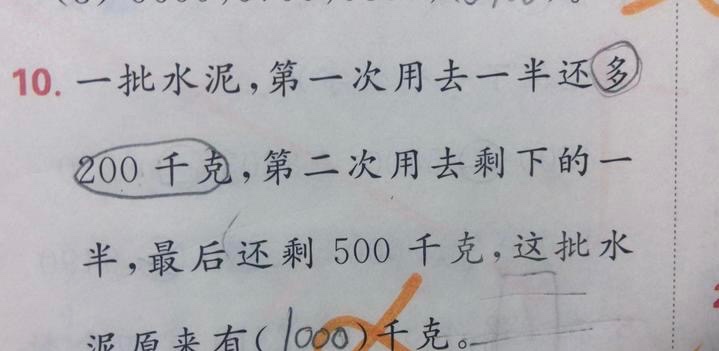 10. 一批水泥，第一次用去一半还多
200千克，第二次用去剩下的一
半，最后还剩500千克，这批水
泥原来有(1000)千克。